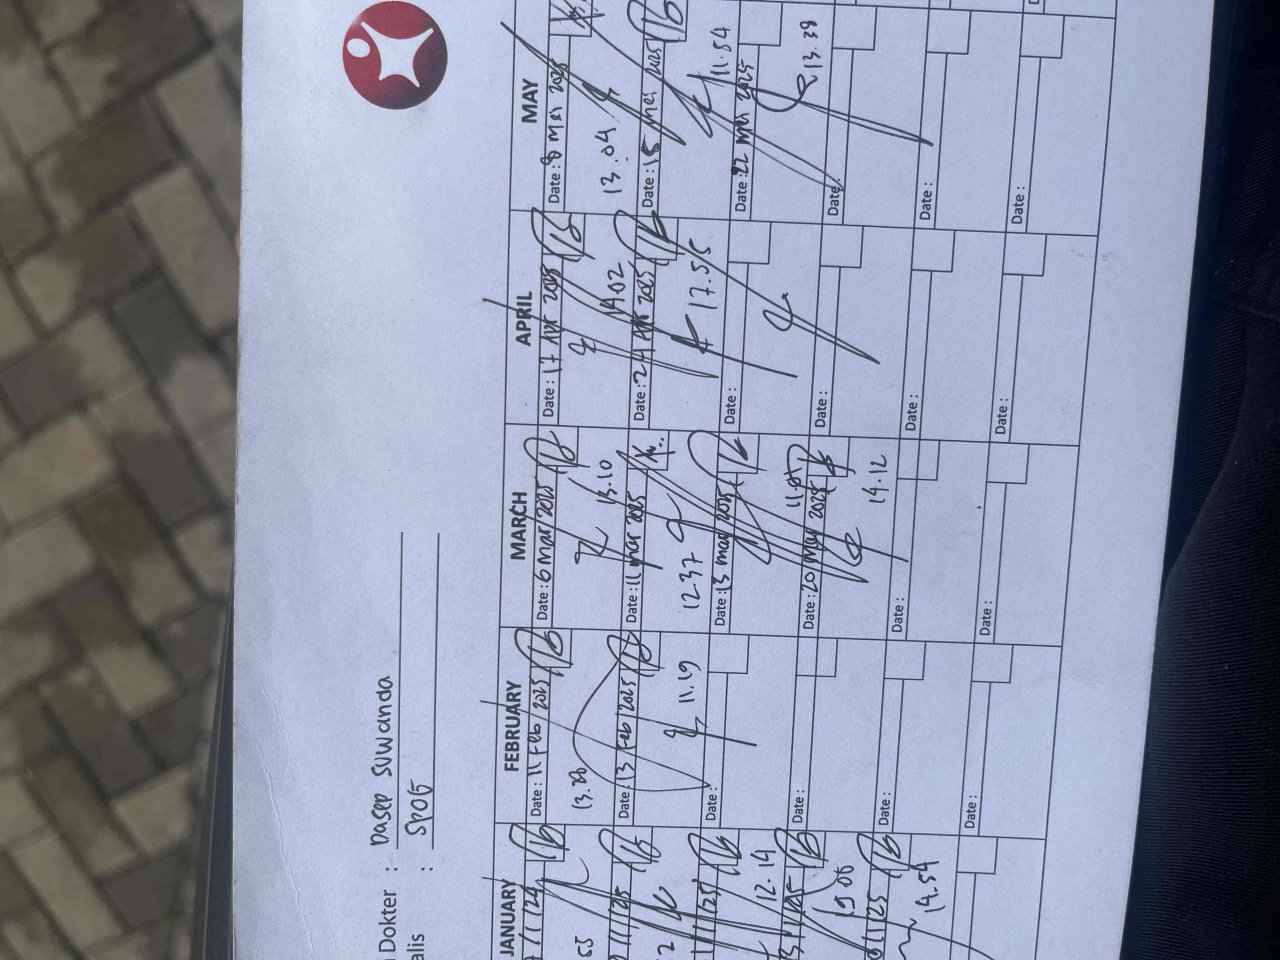 Dokter : Dasep Suwanda
alis : SPOG
JANUARY
FEBRUARY
MARCH
APRIL
MAY
/1/24
55
Date : 11 Feb 2025
13.28
Date : 6 Mar 2025
13.10
Date : 17 Apr 2025
14.02
Date : 8 Mei 2025
13.04
/1/25
2
Date : 13 Feb 2025
11.19
Date : 11 Mar 2025
12.37
Date : 24 Apr 2025
17.55
Date : 15 Mei 2025
11.54
12.14
Date :
Date : 13 Mar 2025
11.07
Date :
Date : 22 Mei 2025
13.39
Date :
Date : 20 Mar 2025
14.12
Date :
Date :
/1/25
14.54
Date :
Date :
Date :
Date :
Date :
Date :
Date :
Date :